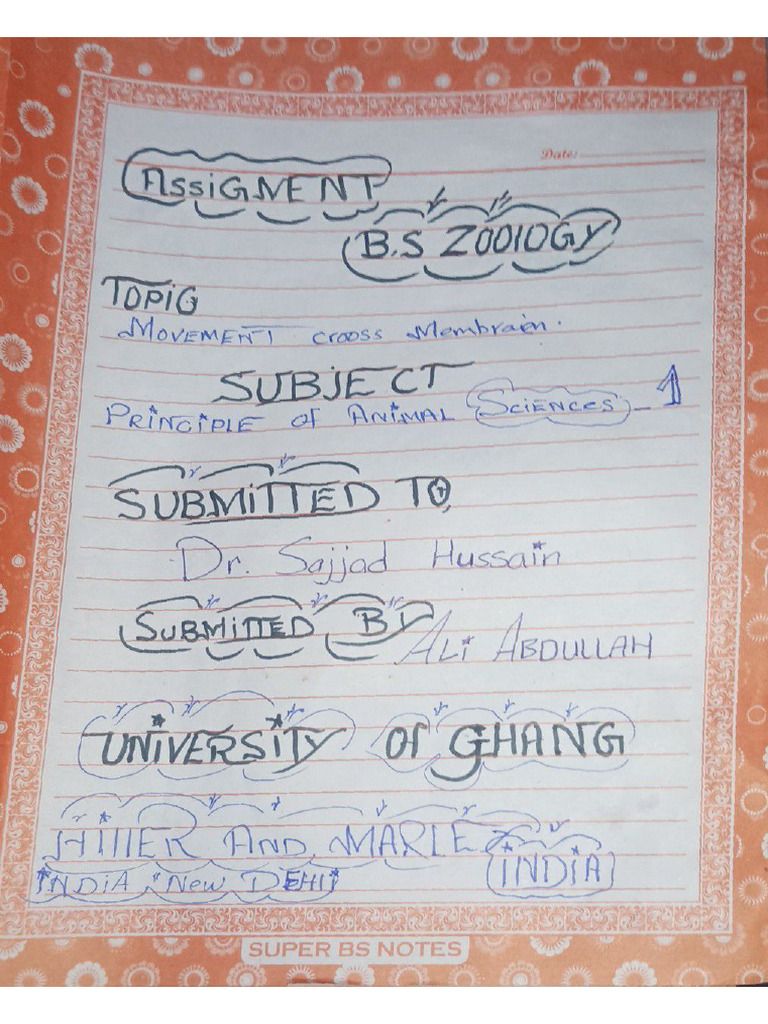 Date:
ASSiGNMENT
B.S ZOOlOGY
TOPiG
MOVEMENT crooss Membrain.
SUBJECT
PRINCIPLE of ANiMAL SCiENCES - 1
SUBMiTTED TO
Dr. Sajjad Hussain
SUBMiTTED BY ALi ABDULLAH
UNiVERSiTY Of GHANG
HillER AND MARIE
iNDiA
iNDiA New DEHli
SUPER BS NOTES